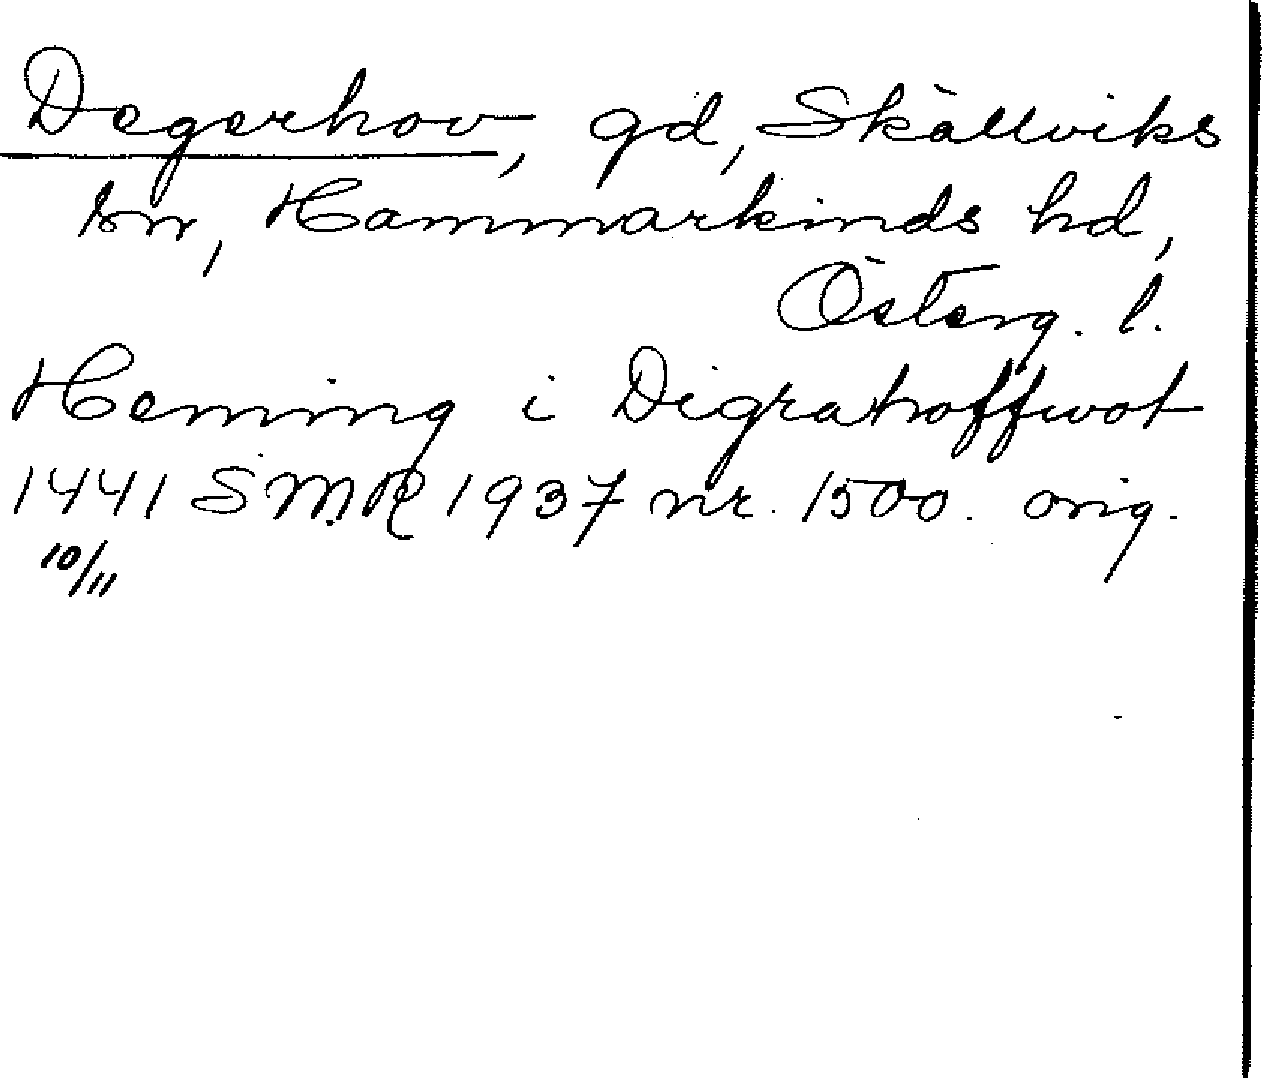 Degerhov, gd, Skällviks
sn, Hammarkinds hd,
Österg. l.
Heming i Digrahoffwot
1441 SMR 1937 nr. 1500. orig.
10/11